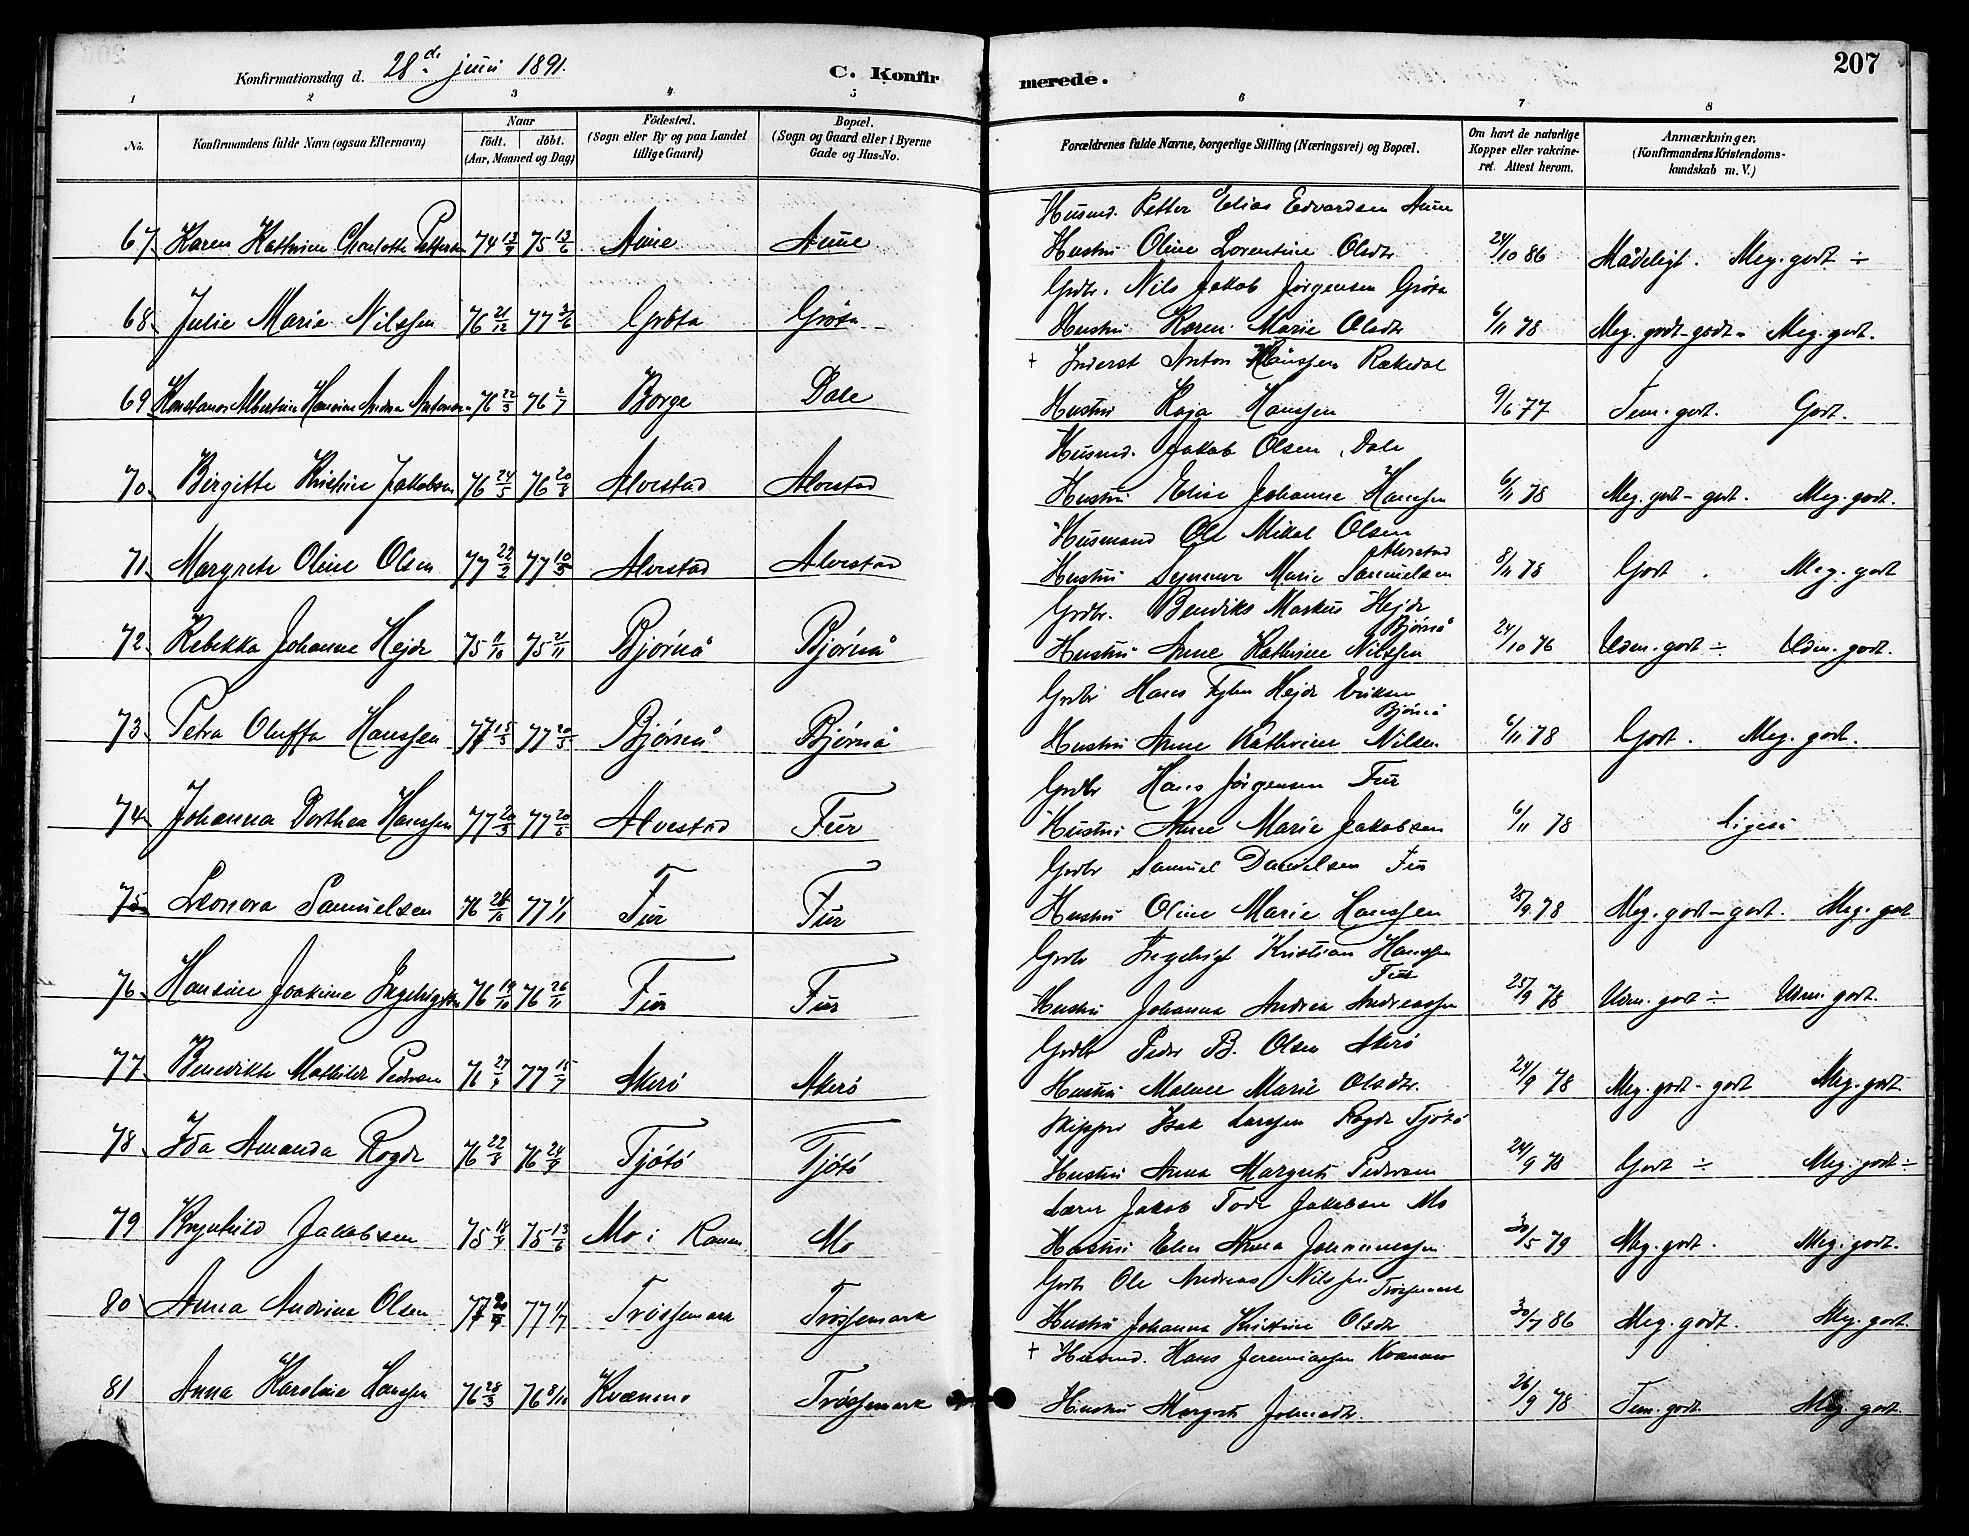 207
Konfirmationsdag d. 28de juni 1891. C. Konfirmerede.
1 2 3 4 5 6 7 8
No. Konfirmandens fulde Navn (ogsaa Efternavn) Naar födt. döbt. (Aar, Maaned og Dag) Födested. (Sogn eller By og paa Landet tillige Gaard) Bopæl. (Sogn og Gaard eller i Byerne Gade og Hus-No. Forældrenes fulde Navne, borgerlige Stilling (Næringsvei) og Bopæl. Om havt de naturlige Kopper eller vakcineret. Attest herom. Anmærkninger. (Konfirmandens Kristendomskundskab m. V.)
Husmd. Petter Elias Edvardsen Aune
67 Karen Kathrine Charlotte Pettersen 74 75 13/6 Aune Aune Hustru Oline Lorentine Olsdtr 24/10 86 Mådeligt. Meg. godt ÷
Grdbr. Nils Jakob Jørgensen Grøta
68 Julie Marie Nilssen 76 21/12 77 Grøta Grøta Hustru Karen Marie Olsdtr 6/11 78 Meg. godt-godt Meg. godt.
+ Inderst Anton Hanssen Rækedal
69 Albertine Hansine Andrea Antonsen 76 22/5 76 2/7 Borge Dale Hustru Kaja Hanssen 9/6 77 Tem. godt. Godt.
Husmd. Jakob Olsen, Dale
70 Birgitte Kristine Jakobsen 76 24/5 76 20/8 Alvestad Alvestad Hustru Elise Johanne Hanssen 6/11 78 Meg. godt-godt. Meg. godt.
Husmand Ole Mikal Olsen Alvestad
71 Margrete Oline Olsen 77 22/2 77 10/5 Alvestad Alvestad Hustru Marie Samuelsen 8/11 78 Godt. Meg. godt
Grdbr. Bendiks Markus Hejde Bjørnå
72 Rebekka Johanne Hejde 75 11/10 75 21/11 Bjørnå Bjørnå Hustru Anne Kathrine Nilssen 24/10 76 Udm. godt ÷ Udm. godt.
Grdbr Hans Hejde Eriksen Bjørnå
73 Petra Oluffa Hanssen 77 15/3 77 20/5 Bjørnå Bjørnå Hustru Anne Kathrine Nilsen 6/11 78 Godt. Meg. godt.
Grdbr Hans Jörgensen Fur
74 Johanna Dorthea Hanssen 77 77 20/5 Alvestad Fur Hustru Anne Marie Jakobsen 6/11 78 Ligeså
Grdbr Samuel Danielsen Fur
75 Leonora Samuelsen 76 77 1/1 Fur Fur Hustru Oline Marie Hanssen 25/9 78 Meg. godt-godt. Meg. godt
Grdbr Ingebrigt Kristian Hanssen Fur
76 Hansine Joakime Ingebrigtsen 76 19/10 76 26/11 Fur Fur Hustru Johanna Andrea Andreassen 25/9 78 Udm. godt ÷ Udm. godt.
Grdbr Peder B. Olsen Akerö
77 Benedikte Mathilde Pedersen 76 77 15/7 Akerö Akerö Hustru Marie Olsdtr. 24/9 78 Meg. godt-godt Meg. godt.
Skipper Isak Larssen Rogde Tjötö
78 Ida Amanda Rogde 76 22/8 76 24/9 Tjötö Tjötö Hustru Anna Margrete Pedersen 24/9 78 Godt ÷ Meg. godt ÷
Lærer Jakob Jakobsen Mo
79 Jakobsen 75 75 13/6 Mo i Ranen Mo Hustru Elen Anna Johannessen 30/5 79 Meg. godt. Meg. godt.
Grdbr Ole Andreas Nilssen Trössemark
80 Anna Andrina Olsen 77 77 1/7 Trössemark Trössemark Hustru Johanna Kristine Olsdtr 30/7 86 Meg. godt. Meg. godt.
+ Husmd. Hans Jeremiassen
81 Anna Karoline Hanssen 76 28/3 76 8/10 Kvænmo Trössemark Hustru Margrete Johnsdtr. 26/9 78 Tem. godt. Meg. godt.